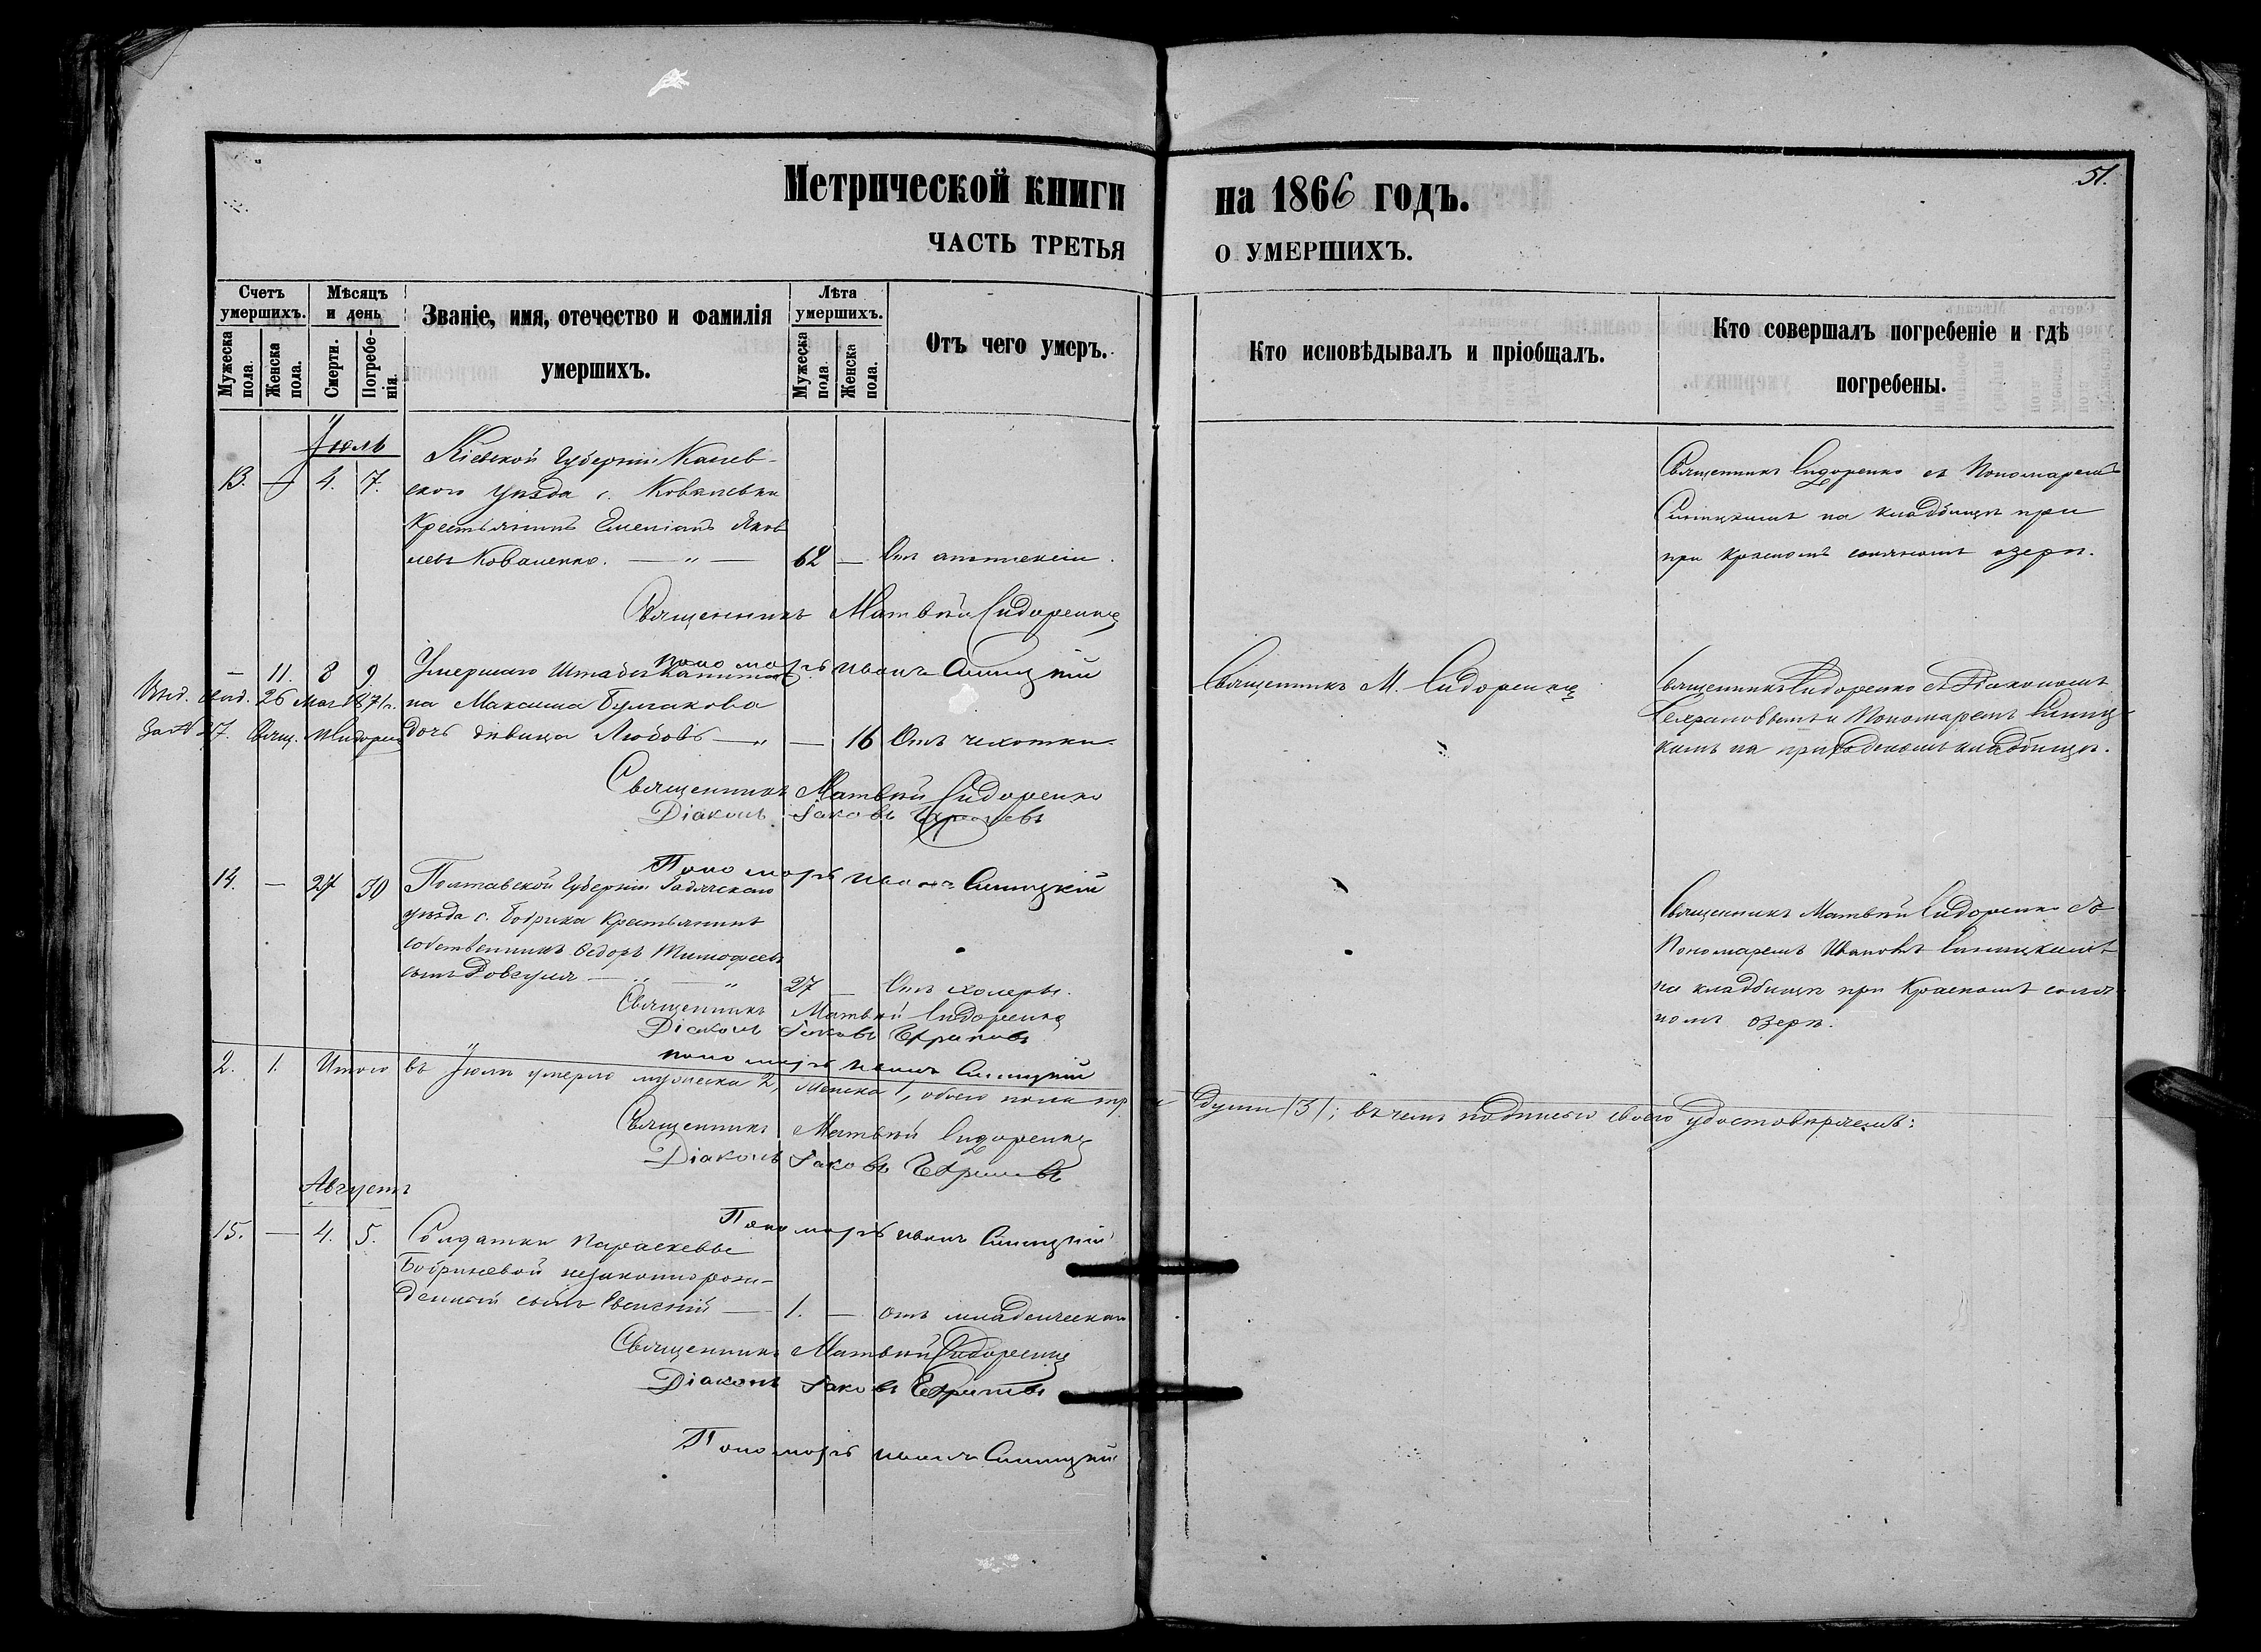 Метрической книги на 1866 годъ.
51.
ЧАСТЬ ТРЕТЬЯ О УМЕРШИХЪ.
Счетъ умершихъ.
Мужеска пола.
Женска пола.
Мѣсяцъ и день
Смерти.
Погребенія.
Званіе, имя, отечество и фамилія
умершихъ.
Лѣта умершихъ.
Мужеска пола.
Женска пола.
Отъ чего умеръ.
Кто исповѣдывалъ и пріобщалъ.
Кто совершалъ погребеніе и гдѣ
погребены.
Іюль
13. — 4. 7.
Кіевской Губерніи Канев-
скаго уѣзда с. Ковалевки
Крестьянинъ Емеліанъ Яков
левъ Коваленко. — " — 62 — Отъ апоплексіи.
Священникъ Сидоренко съ Пономаремъ
Синицкимъ на кладбищѣ при
при Красномъ соляномъ озерѣ.
Священникъ Матвѣй Сидоренко
Пономарь Иванъ Синицкій
— 11. 8 9.
Умершаго Штабсъ Капита
на Максима Булгакова
дочь дѣвица Любовь — " — 16 Отъ чахотки.
26 1871 г.
27. Свящ. М Сидорен
Священникъ М. Сидоренко
Священникъ Сидоренко съ Діакономъ
и Пономаремъ Синиц
кимъ на приходскомъ кладбищѣ.
Священникъ Матвѣй Сидоренко
Діаконъ Іаковъ
Пономарь Иванъ Синицкій
14. — 27 30
Полтавской Губерніи Гадячскаго
уѣзда с. Бобрика Крестьянинъ
собственникъ Ѳедоръ Тимофеевъ
сынъ — " — 27 — Отъ холеры.
Священникъ Матвѣй Сидоренко съ
Пономаремъ Иваномъ Синицкимъ
на кладбищѣ при Красномъ соля
номъ озерѣ.
Священникъ Матвѣй Сидоренко
Діаконъ Іаковъ
Пономарь Иванъ Синицкій
2. 1. Итого въ Іюлѣ умерло мужеска 2, женска 1, обоего пола три души /3/; въ чемъ подписью своею удостовѣряемъ:
Священникъ Матвѣй Сидоренко
Діаконъ Іаковъ
Пономарь Иванъ Синицкій
Августъ
15. — 4. 5.
Солдатки Параскевы
Бобриковой незаконнорож-
денный сынъ Евгеній — 1. — отъ младенческой
Священникъ Матвѣй Сидоренко
Діаконъ Іаковъ
Пономарь Иванъ Синицкій